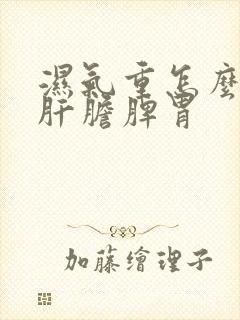 濕氣重怎麼
肝膽脾胃
加藤繪理子